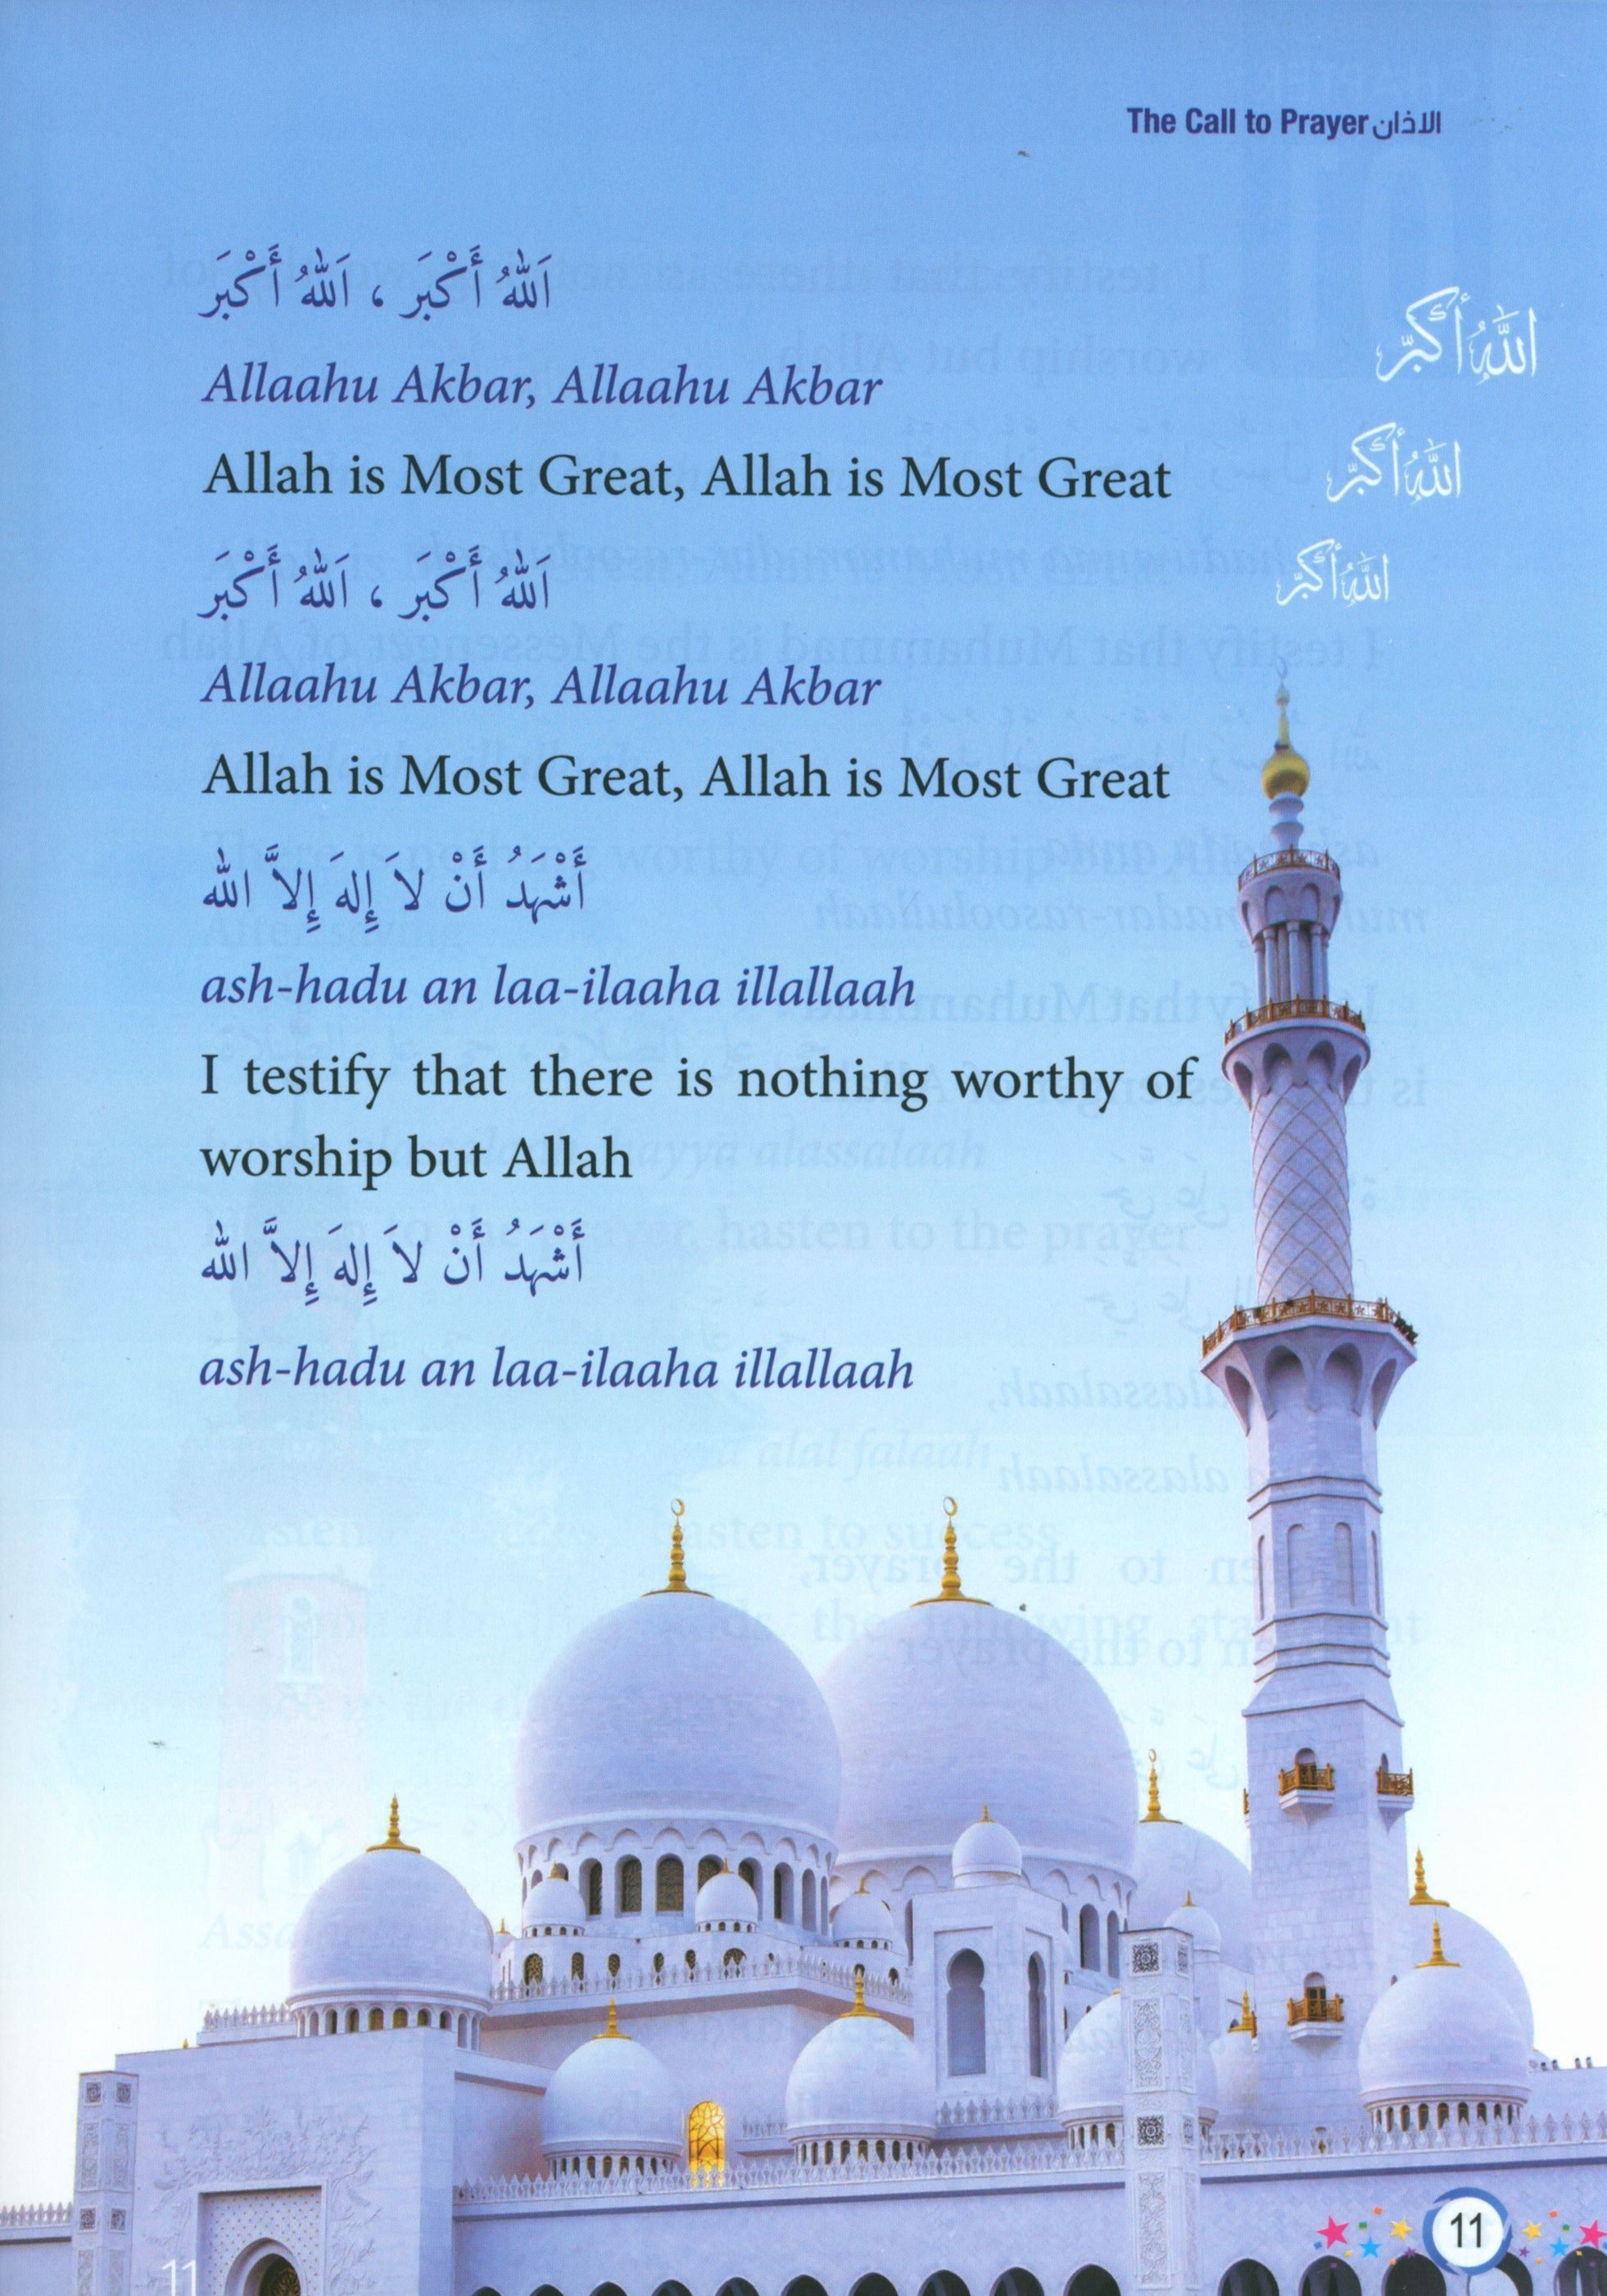 The Call to Prayer الاذان
اَللهُ أَكْبَر ، اَللهُ أَكْبَر
الله أكبر
Allaahu Akbar, Allaahu Akbar
Allah is Most Great, Allah is Most Great
الله أكبر
اَللهُ أَكْبَر ، اَللهُ أَكْبَر
الله أكبر
Allaahu Akbar, Allaahu Akbar
Allah is Most Great, Allah is Most Great
أَشْهَدُ أَنْ لاَ إِلهَ إِلاَّ الله
ash-hadu an laa-ilaaha illallaah
I testify that there is nothing worthy of
worship but Allah
أَشْهَدُ أَنْ لاَ إِلهَ إِلاَّ الله
ash-hadu an laa-ilaaha illallaah
11
11